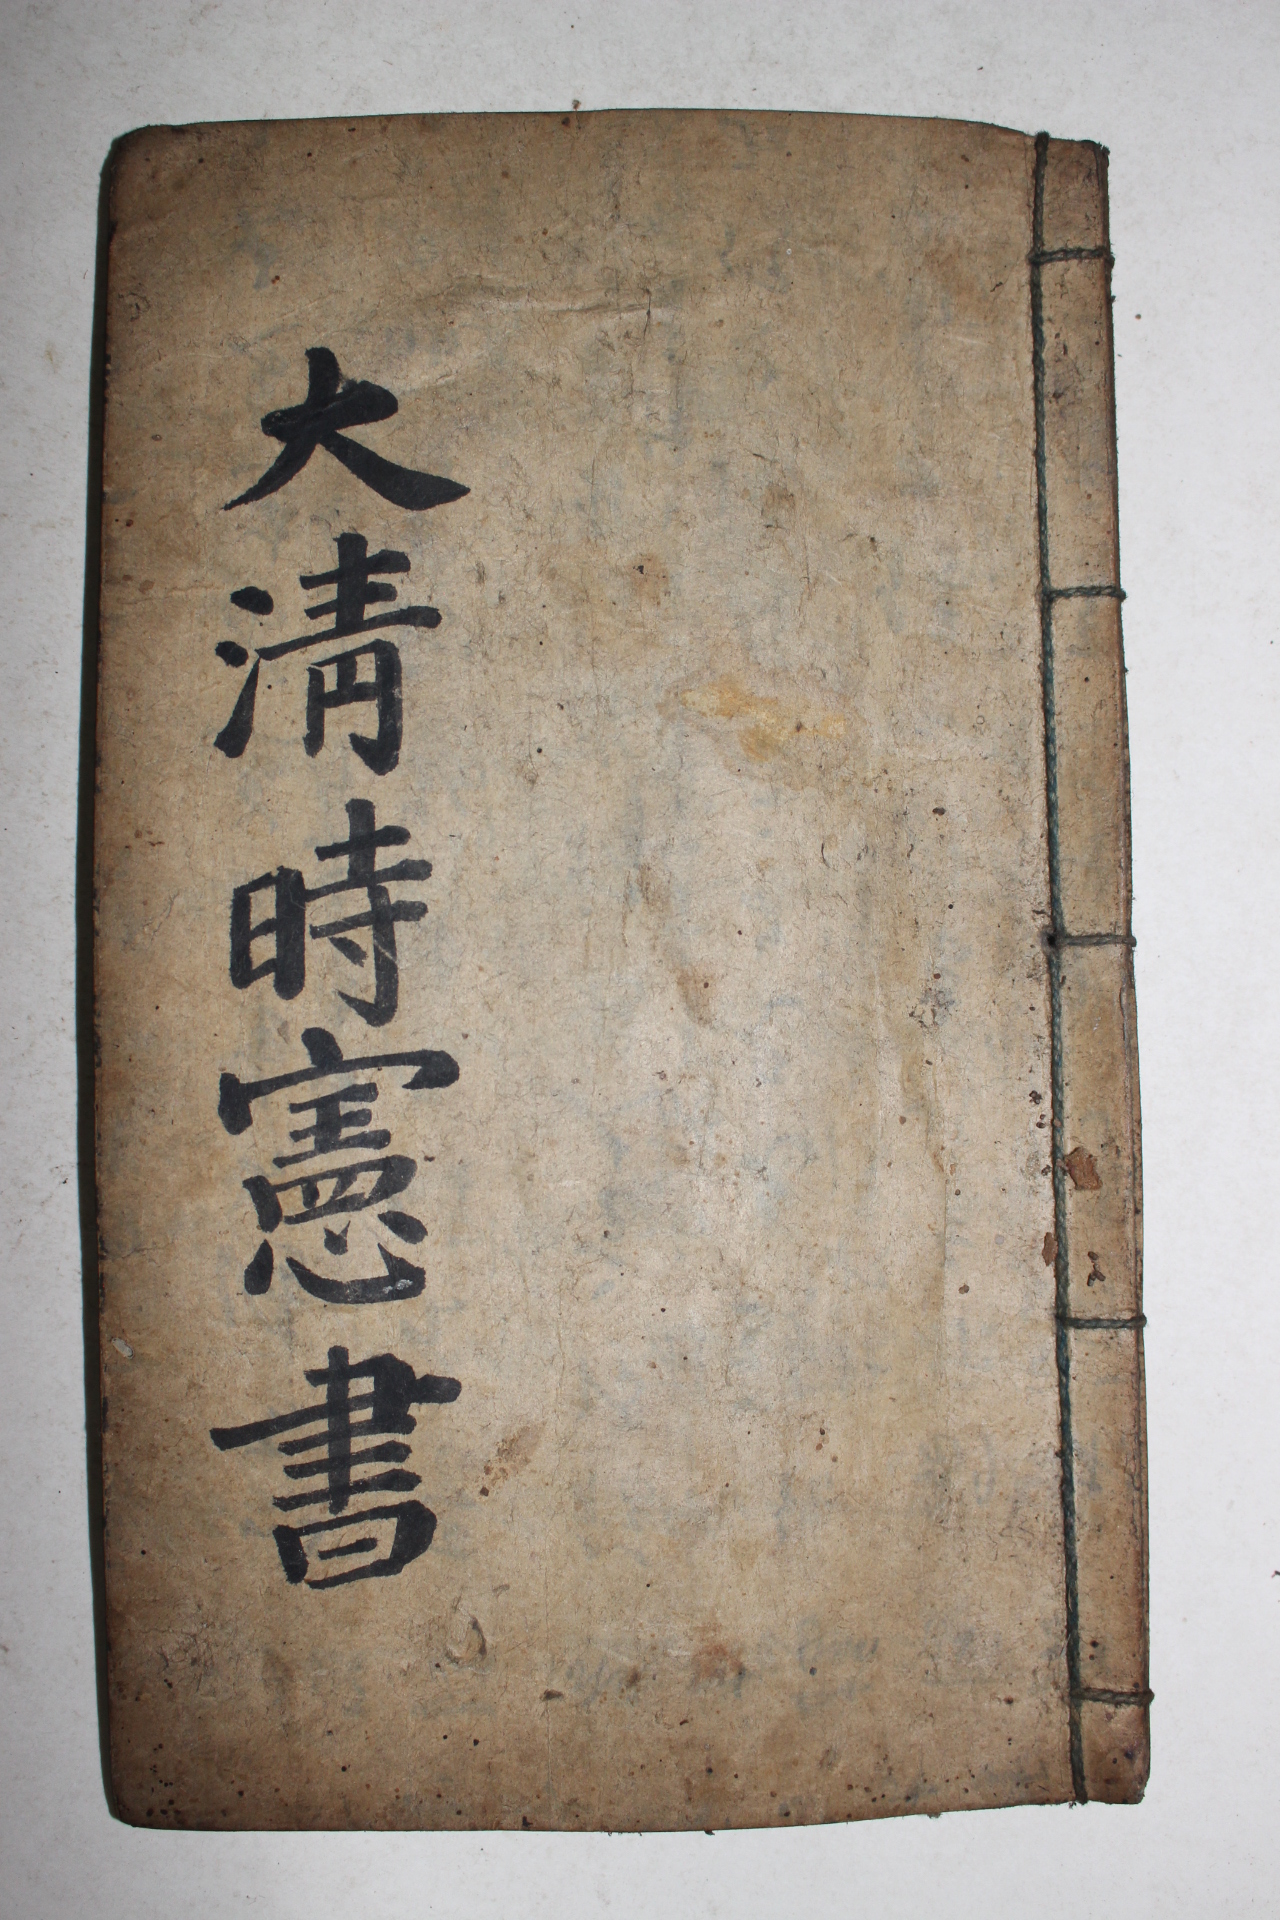 大淸時憲書